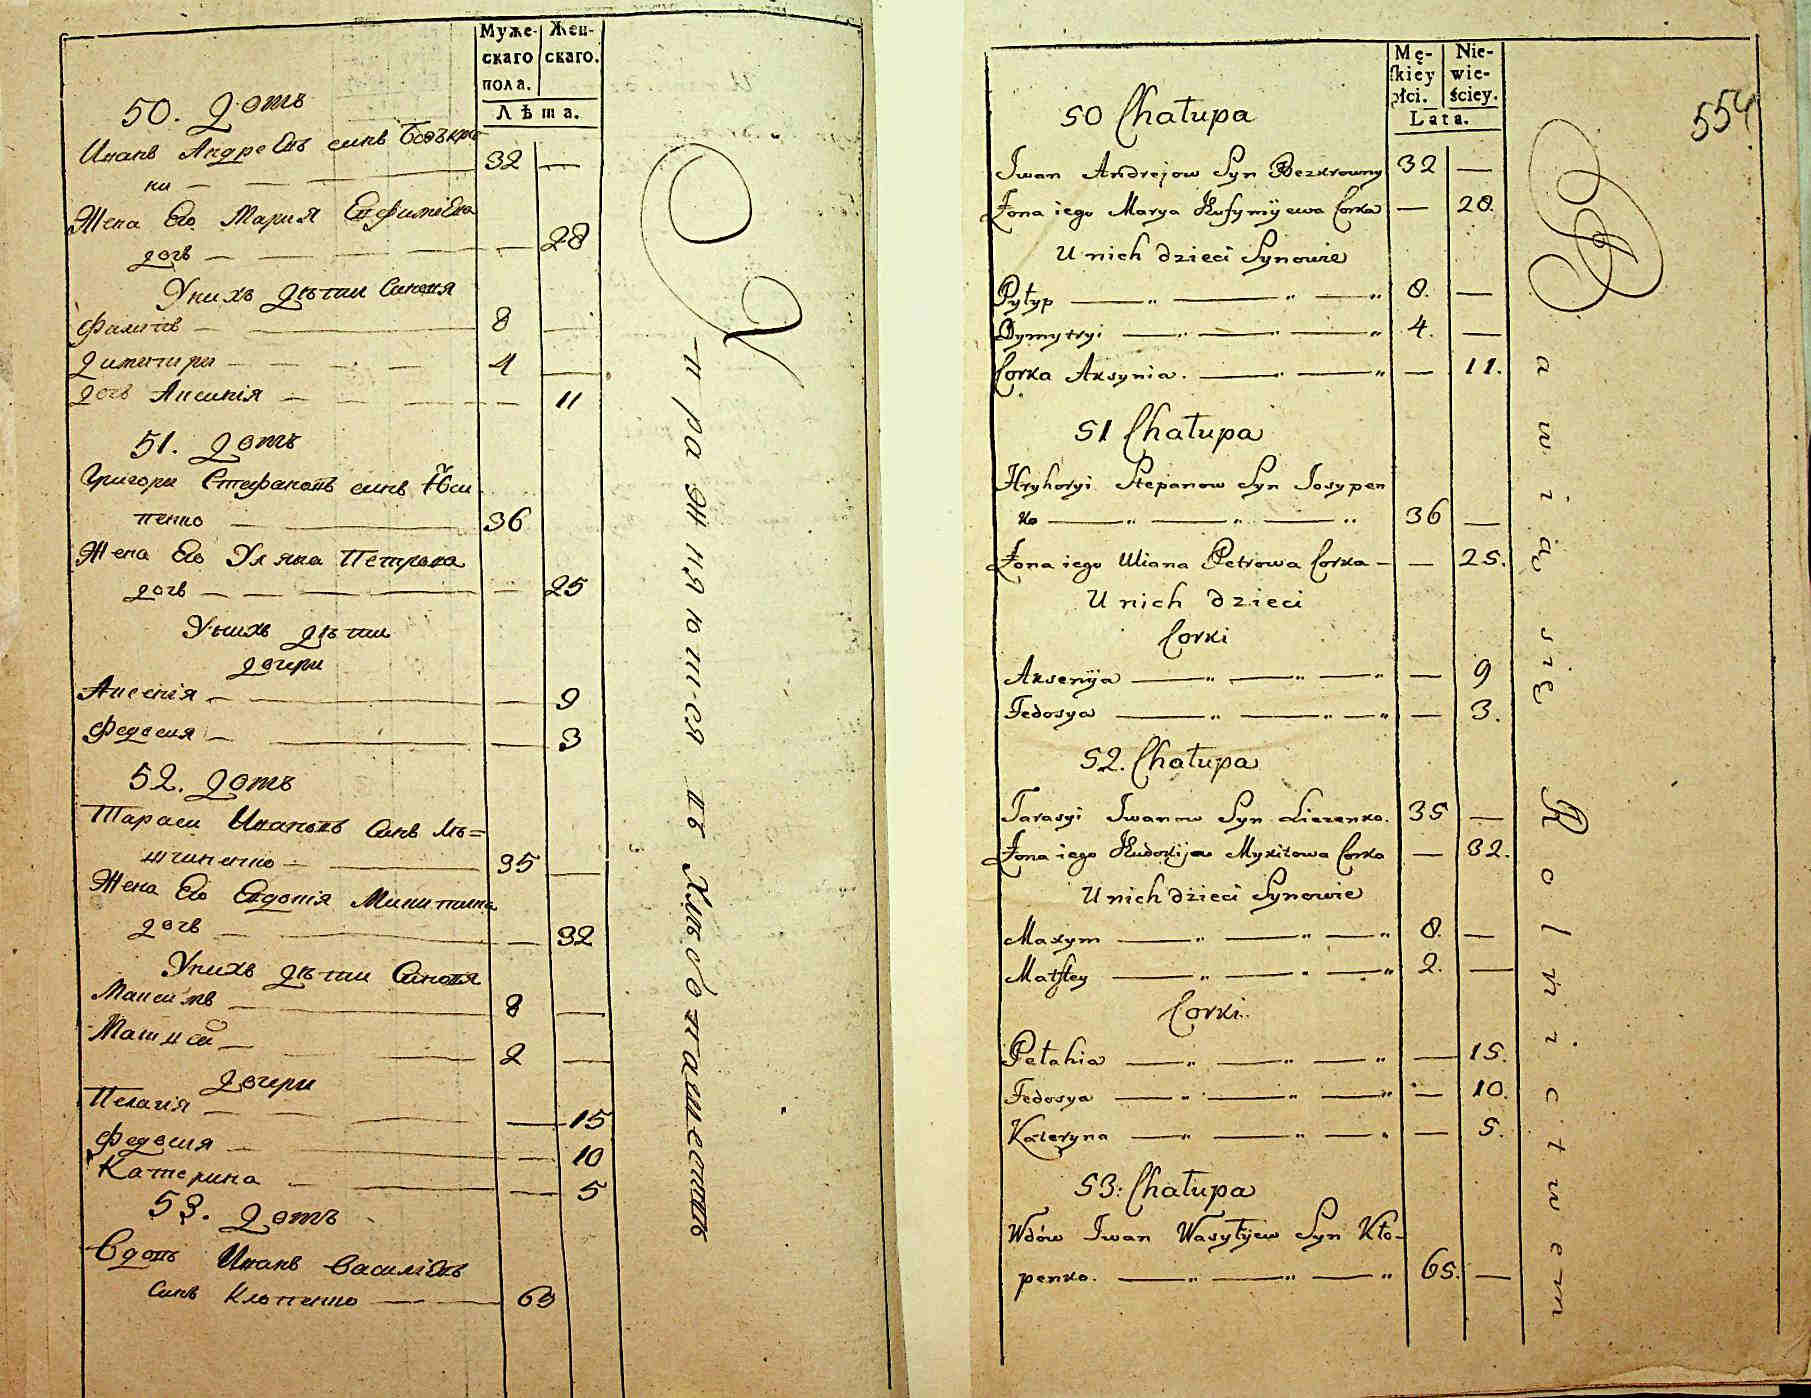 Муже- Жен-
скаго скаго.
пола.
Лѣта.
50. Домъ
Иванъ Андреевъ синъ Безъкро
ни — 32 —
Жена Его Мария Евфимиева
дочь — — 28
Унихъ дѣти Синовя
Филипъ — 8 —
Димитри — 4 —
дочь Аксинія — — 11
51. Домъ
Григори Стефановъ синъ Йоси
пенко — 36
Жена Его Уляна Петрова
дочь — — 25
Унихъ дѣти
дочери
Аксенія — — 9
Федосия — — 3
52. Домъ
Тараси Ивановъ Синъ Лѣ=
щиненко — 35 —
Жена Его Евдокія Микитина
дочь — — 32
Унихъ дѣти Синовя
Максимъ — 8 —
Матвей — 2 —
Дочери
Пелагия — — 15
Федосия — — 10
Катерина — — 5
53. Домъ
Вдовъ Иванъ Василіевъ
синъ Клопенко — 63
Упражняются въ Хлѣбопашествѣ
Mę- Nie-
skiey wie-
płci. ściey.
Lata.
554
50 Chałupa
Iwan Andrejow Syn Bezkrowny 32 —
Żona iego Marya Kufymijewa Corka — 28.
U nich dzieci Synowie
Pyłyp — „ — „ — „ 8. —
Dymytryi — „ — „ — „ 4. —
Corka Aksynia. — „ — „ — 11.
51 Chałupa
Hryhoryi Stepanow Syn Iosypen
ko — „ — „ — „ 36 —
Żona iego Uliana Petrowa Corka — — 25.
U nich dzieci
Corki
Aksenija — „ — „ — „ — 9
Fedosya — „ — „ — „ — 3.
52. Chałupa
Tarasyi Iwanow Syn 35 —
Żona iego Mykitowa Corka — 32.
U nich dzieci Synowie
Maxym — „ — „ — „ 8. —
Matfey — „ — „ — „ 2. —
Corki.
Pelahia — „ — „ — „ — 15.
Fedosya — „ — „ — „ — 10.
Kateryna — „ — „ — „ — 5.
53. Chałupa
Wdów Iwan Wasylyiew Syn Kło-
penko. — „ — „ — „ 65. —
Bawią się Rolnictwem